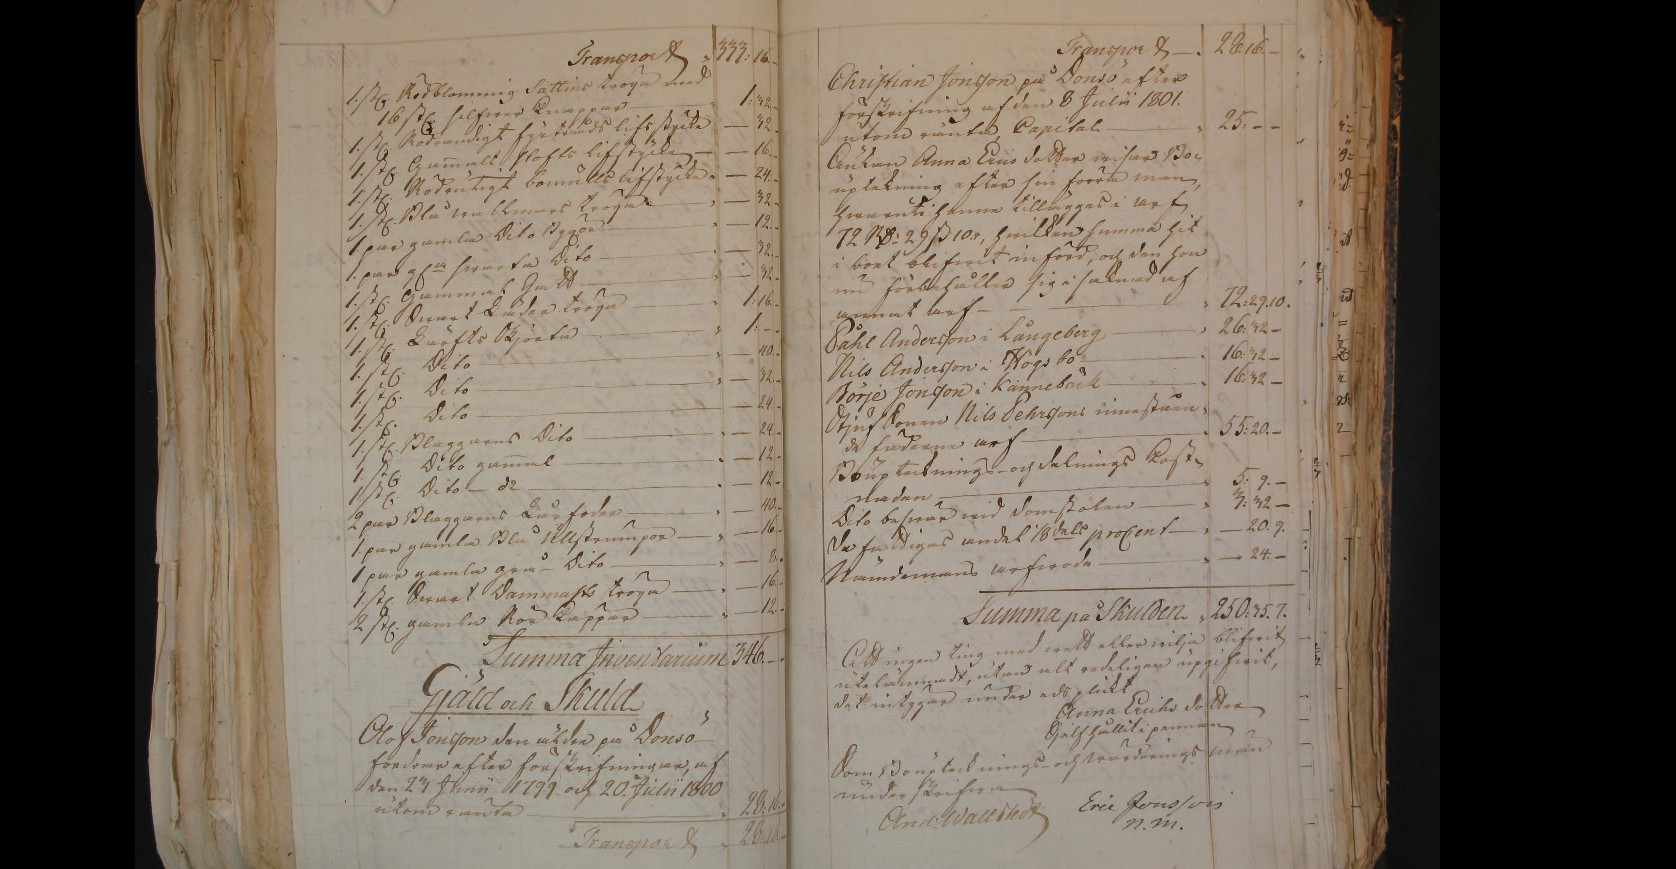 Transport " 333: 16.-
1. st. Rödblommig Sattins tröga med
16 st. silfver Knappar — " 1: 32.-
1. st. Rödrandigt fyrtråds lifstycke — 32.-
1. st. Gammalt Stofts Lifstycke — 16.-
1. st. Rödrutigt bomulls lifstycke " — 24.-
1. st. Blå wallmars tröga " — 32.-
1 par gamla Dito Byxor " — 12.-
1. par swarta Dito — 32.-
1. st. Gammal Hatt — 32.-
1. st. Swart Kläde tröga " 1: 16.-
1. st. Lärfts Skjorta " 1: - -
1. st. Dito " — 40.-
1. st. Dito " — 32.-
1. st. Dito " — 24.-
1. st. Blaggarns Dito " — 24.-
1 st. Dito gammal " — 12.-
1 st. Dito — do " — 12.-
2 par Blaggarns " — 40.-
1. par gamla Blå Ullstrumpor " — 16.-
1 par gamla grå Dito " — 8.-
1 st. Swart Dammasks tröga " — 16.-
2 st. gamla Rör Käppar " — 12.-
Summa Inventarium 346.- -
Gjäld och Skuld
Olof Jonsson den äldre på Donsö
fordrar efter förskrifningar af
den 23 Junii 1799 och 20. Julii 1800
utom ränta " 28. 16.-
Transport " 28. 16.-
Transport — . 28. 16.-
Christian Jonsson på Donsö efter
förskrifning af den 8 Julii 1801.
utom ränta Capital " 25: - -
Enkan Anna Erics dotter wisar Bo-
upteckning efter sin förra man,
hwaruti henne tillägges i arf
72 Rd: 29 ß 10 r, hwilken summa hit
i boet blifwit införd, och den hon
nu förbehåller sig i saknad af
annat arf — " 72: 29. 10.
Påhl Andersson i Långeberg " 26: 32 -
Nils Andersson i Högsbo . 16: 32 -
Börje Jonsson i Kannebäck " 16: 32 -
Stjuf Sonen Nils Pehrssons innestaen-
de fäderne arf " 55: 20.-
Boupteknings- och delnings Kost-
naden " 5: 9.-
Dito beswär wid Domstolen " 3: 32 -
De fattigas andel 1/8 dels procent " — 20. 9.
Nämdemans arfwode " — 24.-
Summa på Skulden " 250: 35. 7.
Att ingen ting med wett eller wilja blifwit
utelämnadt, utan alt redeligen upgifwit,
det intygar under eds plikt
Anna Erichs dotter
hållit i pennan
Som Boupteknings- och Wärderings män
underskrifwa
And: Wallstedt Eric Jonsson
N. M.